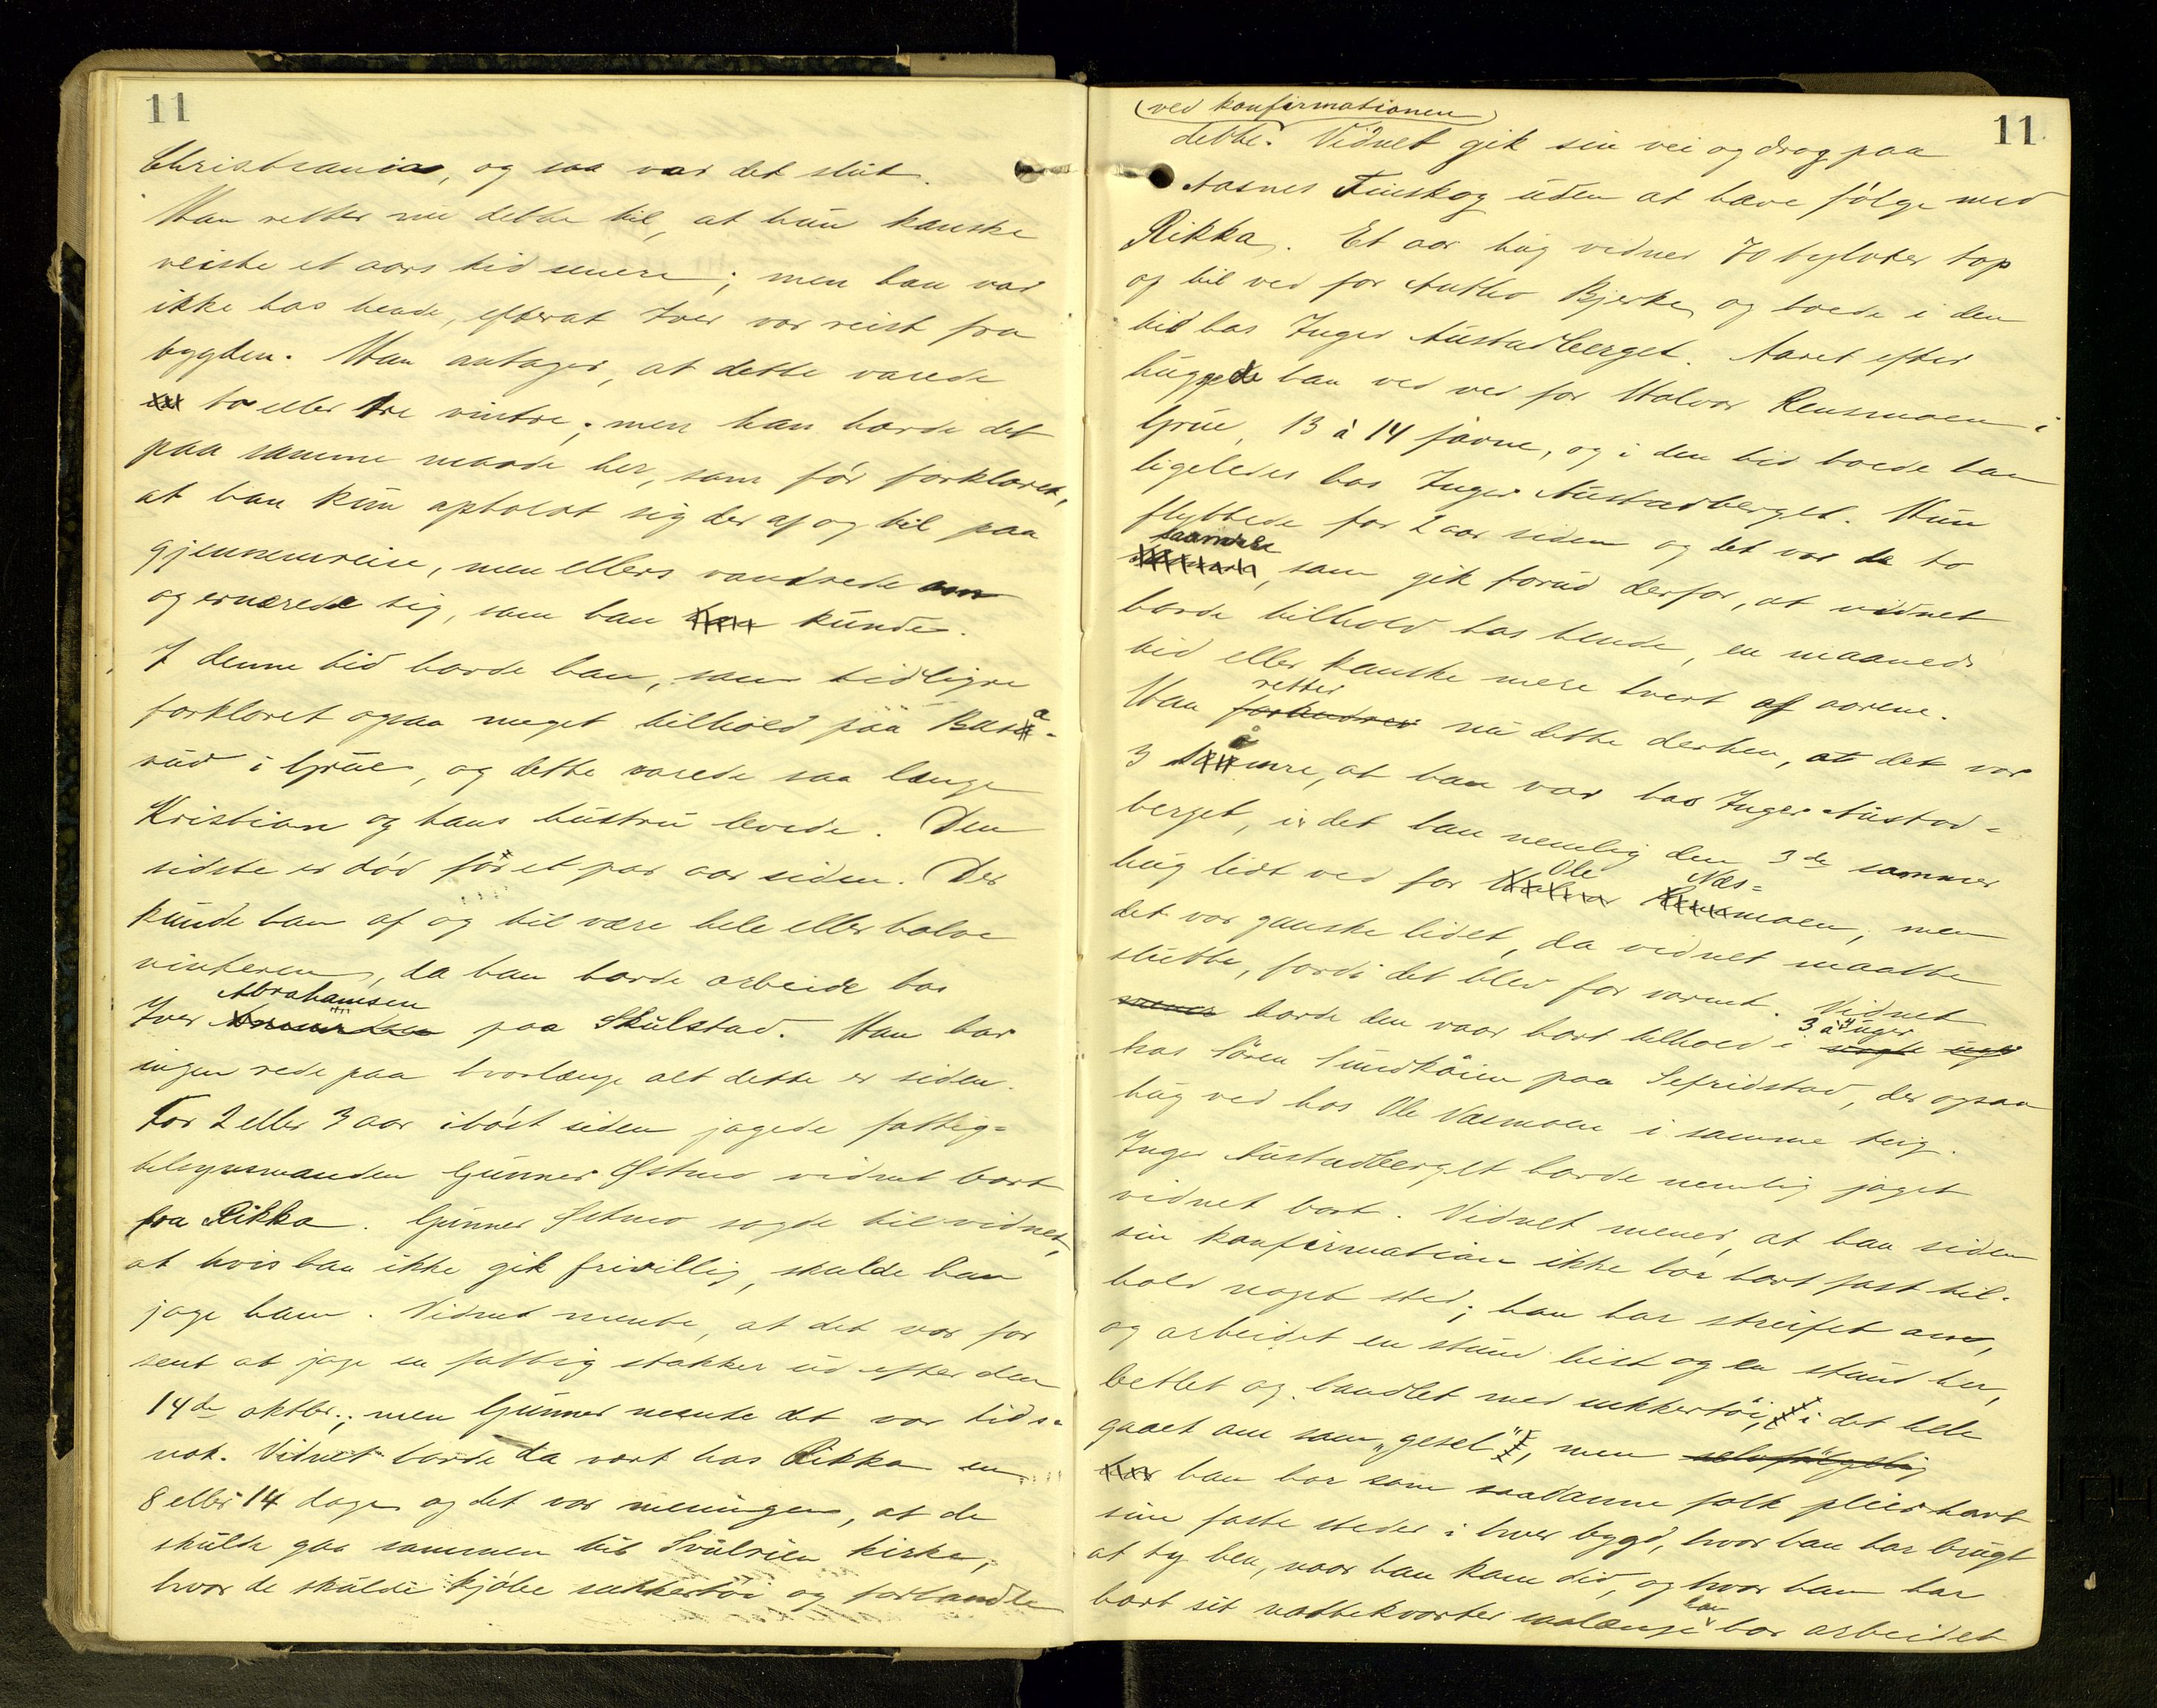 11
Christiania, og saa var det slut.
Han retter nu dette til, at hun kanske
reiste et aars tid senere; men han var
ikke hos hende, efterat Iver var reist fra
bygden. Han antager, at dette varede
to eller tre vintre; men han havde det
paa samme maade her, som før forklaret,
at han kun opholdt sig der af og til paa
gjennemreise, men ellers vandrede om
og ernærede sig, som han kunde.
I denne tid havde han, som tidligre
forklaret ogsaa meget tilhold paa Basa-
rud i Grue, og dette varede saa længe
Kristian og hans hustru levede. Den
sidste er død for et par aar siden. Der
kunde han af og til være hele eller halve
vinteren, da han havde arbeide hos
Abrahamsen
Iver paa Skulstad. Han har
ingen rede paa hvorlænge alt dette er siden.
For 2 eller 3 aar ihøst siden jagede fattig-
tilsynsmanden Gunner Østmo vidnet bort
fra Rikka. Gunner Østmo sagde til vidnet,
at hvis han ikke gik frivillig, skulde han
jage ham. Vidnet mente, at det var for
sent at jage en fattig stakker ud efter den
14de oktbr.; men Gunner mente det var tids-
nok. Vidnet havde da vært hos Rikka en
8 eller 14 dage og det var meningen, at de
skulde gaa sammen til Svulrien kirke,
hvor de skulde kjøbe sukkertøi og forhandle
11
(ved konfirmationen)
dette. Vidnet gik sin vei og drog paa
Aasnes Finskog uden at have følge med
Rikka. Et aar hug vidnet 70 tylvter top
op til ved for Anthor Bjerke, og boede i den
tid hos Inger Austadberget. Aaret efter
huggede han ved ved for Halvor Rensmoen i
Grue, 13 à 14 favne, og i den tid boede han
ligeledes hos Inger Austadberget. Hun
flyttede for 2 aar siden og det var de to
somre
, som gik forud derfor, at vidnet
havde tilhold hos hende, en maaneds
tid eller kanske mere hvert af aarene.
retter
Han forandrer nu dette derhen, at det var
3 somre, at han var hos Inger Austad-
berget, i det han nemlig den 3de sommer
Ole Næs-
hug lidt ved for moen, men
det var ganske lidet, da vidnet maatte
slutte, fordi det blev for varmt. Vidnet
3 à 4 uger
havde den vaar havt tilhold i nogle uger
hos Søren Sundkåien paa Sefridstad, der ogsaa
hug ved hos Ole Næsmoen i samme teig.
Inger Austadberget havde nemlig jaget
vidnet bort. Vidnet mener, at han siden
sin konfirmation ikke har havt fast til-
hold noget sted; han har streifet om,
og arbeidet en stund hist og en stund her,
betlet og handlet med sukkertøi, i det hele
gaaet om som "gesel", men selvfølgelig
han har som saadanne folk pleier havt
sine faste steder i hver bygd, hvor han har brugt
at ty hen, naar han kom did, og hvor han har
han
havt sit nattekvarter saalænge har arbeidet